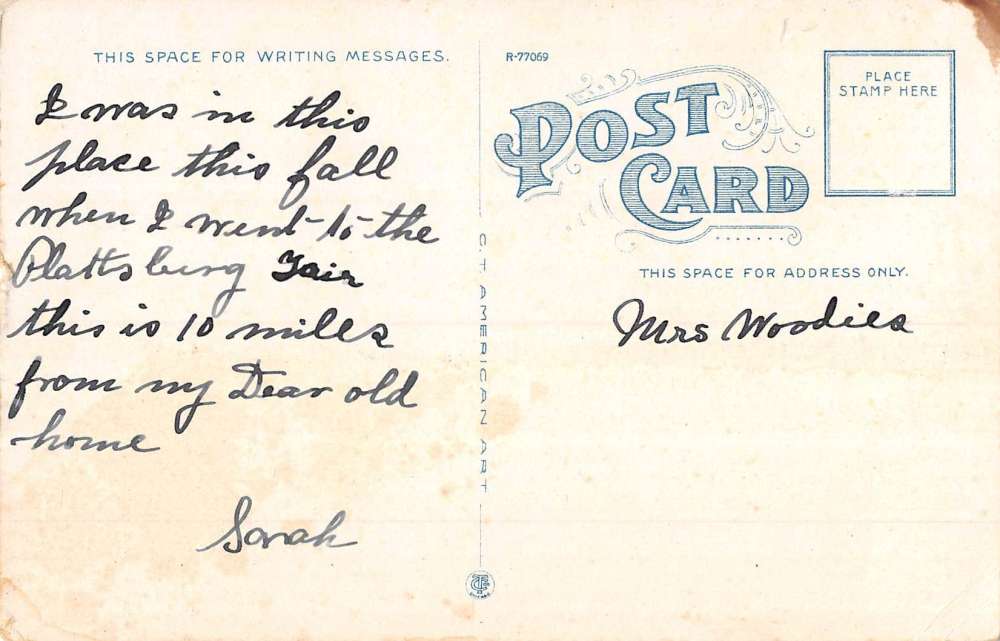 THIS SPACE FOR WRITING MESSAGES.
I was in this
place this fall
when I went to the
Plattsburg Fair
this is 10 miles
from my Dear old
home
Sarah
C.T. AMERICAN ART
R-77069
POST
CARD
PLACE
STAMP HERE
THIS SPACE FOR ADDRESS ONLY.
Mrs Woodies